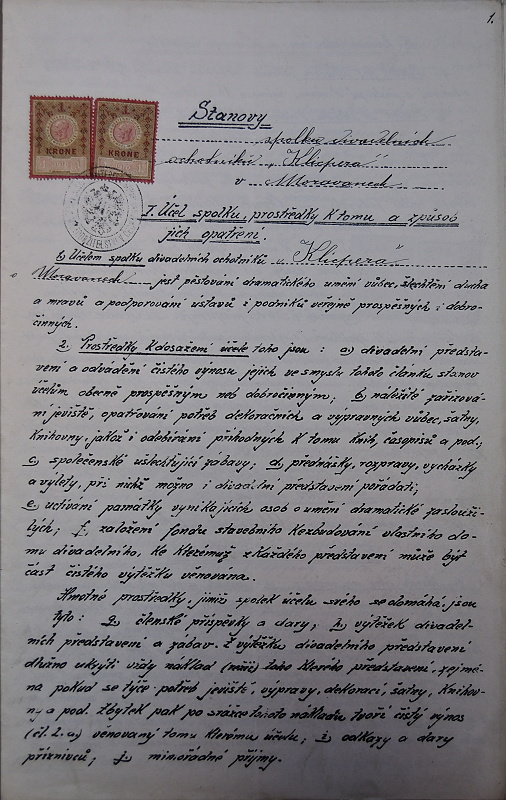 1.
Stanovy
spolku divadelních
ochotníků „Klicpera"
v Moravanech
1
1
KRONE
KRONE
I. Účel spolku, prostředky k tomu a způsob
jich opatření.
1) Účelem spolku divadelních ochotníků „Klicpera"
v Moravanech jest pěstování dramatického umění vůbec, šlechtění ducha
a mravů a podporování ústavů i podniků veřejně prospěšných i dobro-
činných.
2. Prostředky k dosažení účele toho jsou: a) divadelní předsta-
vení a odvádění čistého výnosu jejich ve smyslu tohoto článku stanov
účelům obecně prospěšným neb dobročinným; b) náležité zařizová-
ní jeviště, opatřování potřeb dekoračních a výpravných vůbec, šatny,
knihovny, jakož i odebírání příhodných k tomu knih, časopisů a pod.;
c, společenské ušlechťující zábavy; d, přednášky, rozpravy, vycházky
a výlety, při nichž možno i divadelní představení pořádati;
e, uctívání památky vynikajících osob o umění dramatické zaslouži-
lých; f, založení fondu stavebního k vybudování vlastního do-
mu divadelního, ke kterémuž z každého představení může být
část čistého výtěžku věnována.
Hmotné prostředky, jimiž spolek účelu svého se domáhá, jsou
tyto: g, členské příspěvky a dary; h, výtěžek divadel-
ních představení a zábav. Z výtěžku divadelního představení
dlužno ukrýti vždy náklad (režii) toho kterého představení, zejmé-
na pokud se týče potřeb jeviště, výpravy, dekorací, šatny, knihov-
ny a pod. Zbytek pak po srážce tohoto nákladu tvoří čistý výnos
(čl. 2. a) věnovaný tomu kterému účelu; i, odkazy a dary
příznivců; j, mimořádné příjmy.